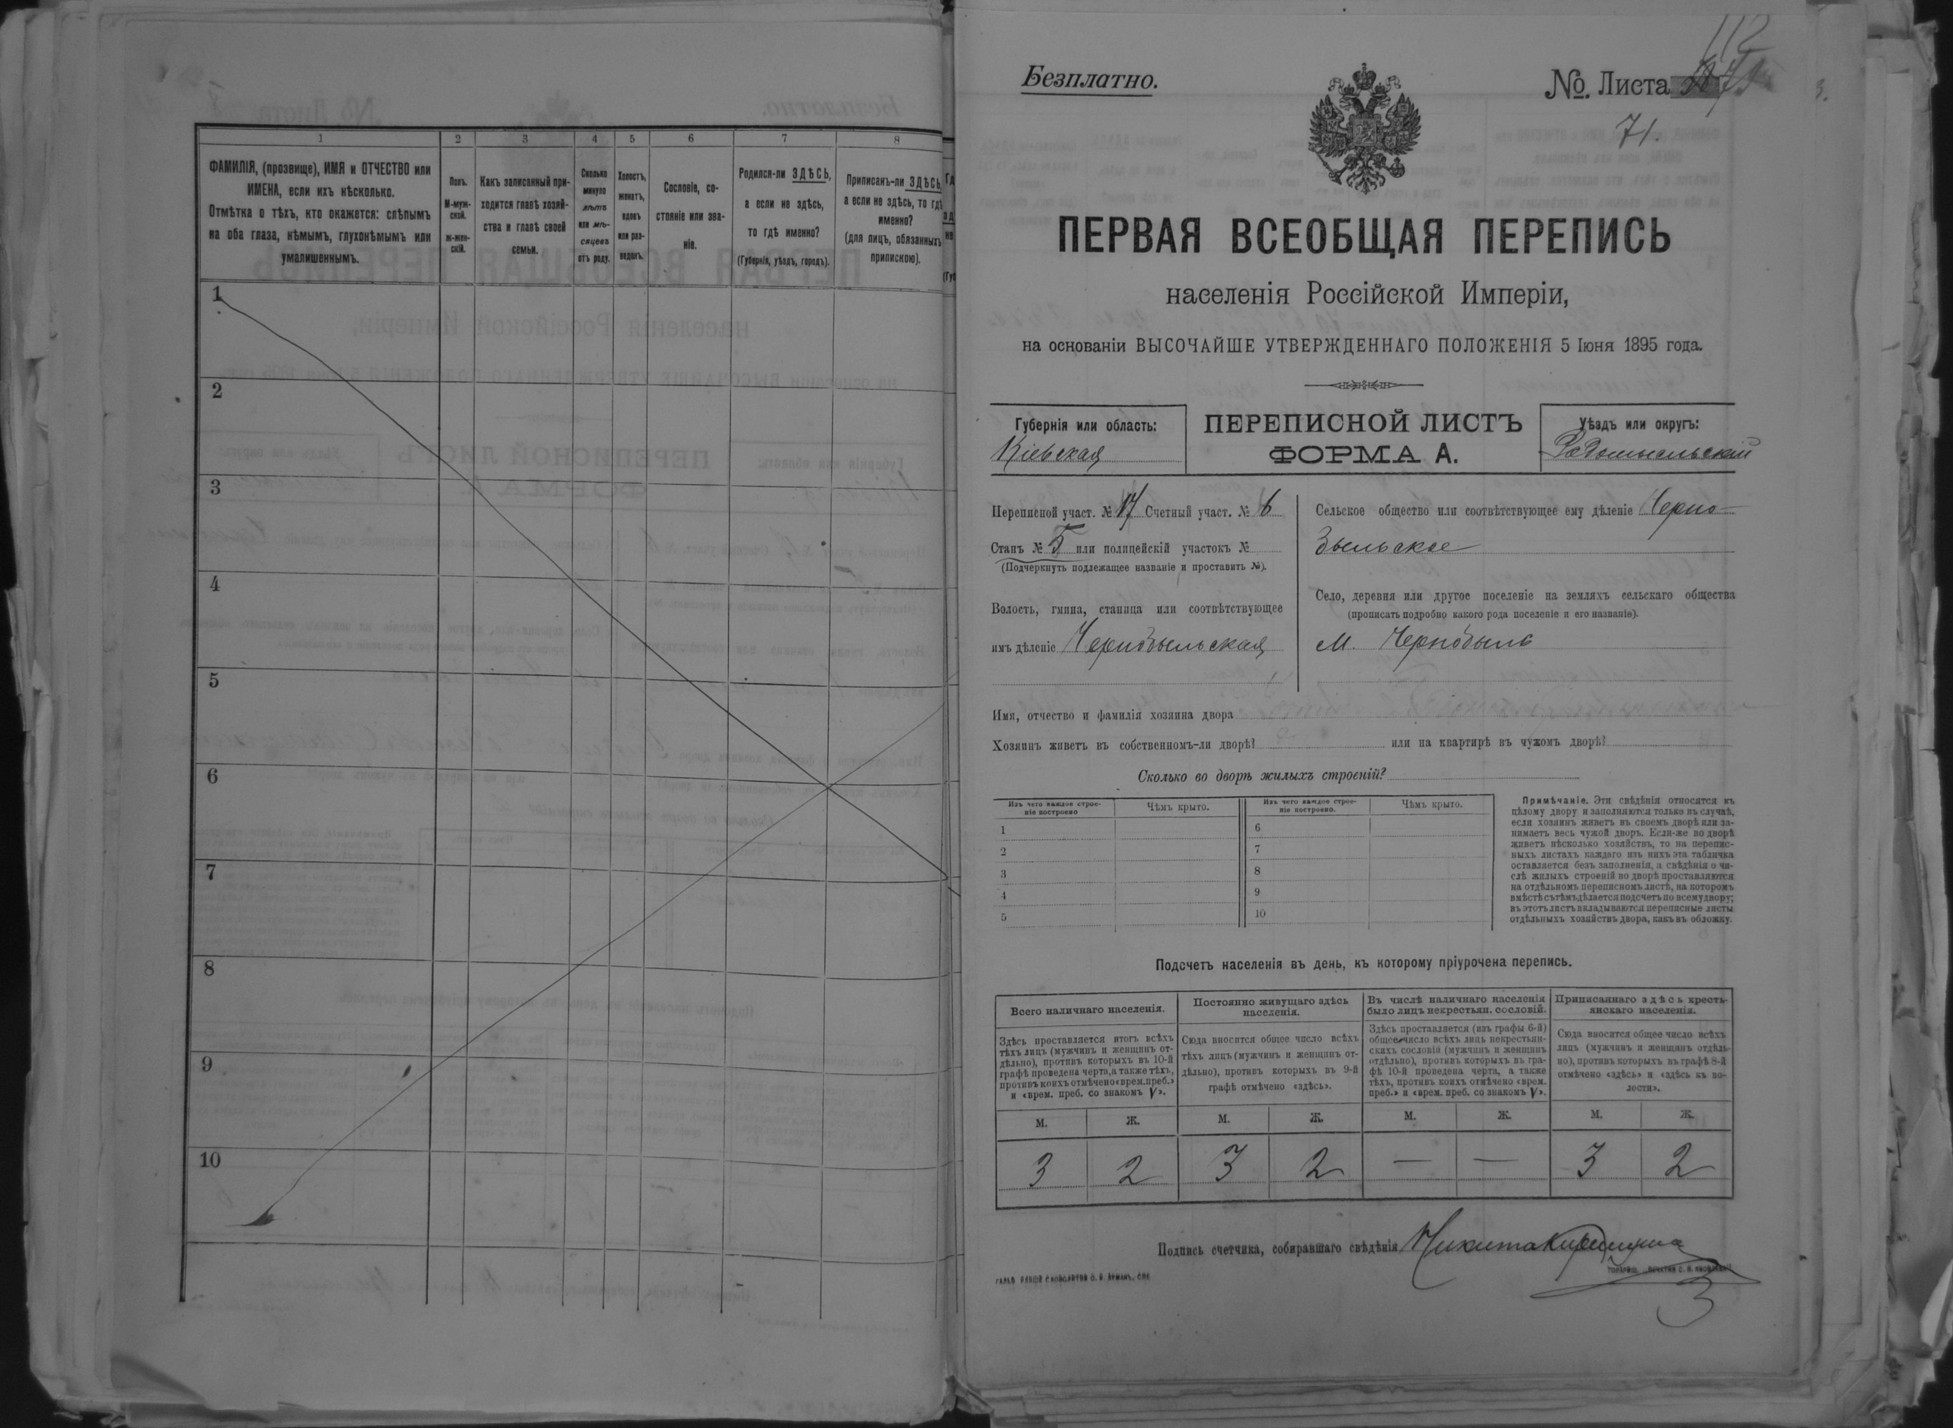 1
2
3
4
5
6
7
8
ФАМИЛІЯ, (прозвище), ИМЯ и ОТЧЕСТВО или
ИМЕНА, если ихъ нѣсколько.
Отмѣтка о тѣхъ, кто окажется: слѣпымъ
на оба глаза, нѣмымъ, глухонѣмымъ или
умалишеннымъ.
Полъ.
М-муж-
ской.
Ж-жен-
скій.
Какъ записанный при-
ходится главѣ хозяй-
ства и главѣ своей
семьи.
Сколько
минуло
лѣтъ
или мѣ-
сяцевъ
отъ роду.
Холостъ,
женатъ,
вдовъ
или раз-
веденъ.
Сословіе, со-
стояніе или зва-
ніе.
Родился-ли ЗДѢСЬ,
а если не здѣсь,
то гдѣ именно?
(Губернія, уѣздъ, городъ).
Приписанъ-ли ЗДѢСЬ,
а если не здѣсь, то гдѣ
именно?
(для лицъ, обязанныхъ
припискою).
1
2
3
4
5
6
7
8
9
10
Безплатно.
112
№ Листа
71.
ПЕРВАЯ ВСЕОБЩАЯ ПЕРЕПИСЬ
населенія Россійской Имперіи,
на основаніи ВЫСОЧАЙШЕ УТВЕРЖДЕННАГО ПОЛОЖЕНІЯ 5 Іюня 1895 года.
Губернія или область:
Кіевская
ПЕРЕПИСНОЙ ЛИСТЪ
ФОРМА А.
Уѣздъ или округъ:
Радомысльскій
Переписной участ. № 17 Счетный участ. № 6
Станъ № 5 или полицейскій участокъ №
(Подчеркнуть подлежащее названіе и проставить №).
Волость, гмина, станица или соотвѣтствующее
имъ дѣленіе Чернобыльская
Сельское общество или соотвѣтствующее ему дѣленіе Черно-
быльское
Село, деревня или другое поселеніе на земляхъ сельскаго общества
(прописать подробно какого рода поселеніе и его названіе).
М. Чернобыль
Имя, отчество и фамилія хозяина двора
Хозяинъ живетъ въ собственномъ-ли дворѣ? или на квартирѣ въ чужомъ дворѣ?
Сколько во дворѣ жилыхъ строеній?
Изъ чего каждое строе-
ніе построено
Чѣмъ крыто.
Изъ чего каждое строе-
ніе построено.
Чѣмъ крыто.
1
2
3
4
5
6
7
8
9
10
Примѣчаніе. Эти свѣдѣнія относятся къ
цѣлому двору и заполняются только въ случаѣ,
если хозяинъ живетъ въ своемъ дворѣ или за-
нимаетъ весь чужой дворъ. Если-же во дворѣ
живетъ нѣсколько хозяйствъ, то на перепис-
ныхъ листахъ каждаго изъ нихъ эта табличка
оставляется безъ заполненія, а свѣдѣнія о чи-
слѣ жилыхъ строеній во дворѣ проставляются
на отдѣльномъ переписномъ листѣ, на которомъ
вмѣстѣ съ тѣмъ дѣлается подсчетъ по всему двору;
въ этотъ листъ вкладываются переписные листы
отдѣльныхъ хозяйствъ двора, какъ въ обложку.
Подсчетъ населенія въ день, къ которому пріурочена перепись.
Всего наличнаго населенія.
Здѣсь проставляется итогъ всѣхъ
тѣхъ лицъ (мужчинъ и женщинъ от-
дѣльно), противъ которыхъ въ 10-й
графѣ проведена черта, а также тѣхъ,
противъ коихъ отмѣчено «врем. преб.»
и «врем. преб. со знакомъ V».
Постоянно живущаго здѣсь
населенія.
Сюда вносится общее число всѣхъ
тѣхъ лицъ (мужчинъ и женщинъ от-
дѣльно), противъ которыхъ въ 9-й
графѣ отмѣчено «здѣсь».
Въ числѣ наличнаго населенія
было лицъ некрестьян. сословій.
Здѣсь проставляется (изъ графы 6-й)
общее число всѣхъ лицъ некрестьян-
скихъ сословій (мужчинъ и женщинъ
отдѣльно), противъ которыхъ въ гра-
фѣ 10-й проведена черта, а также
тѣхъ, противъ коихъ отмѣчено «врем.
преб.» и «врем. преб. со знакомъ V».
Приписаннаго здѣсь кресть-
янскаго населенія.
Сюда вносится общее число всѣхъ
лицъ (мужчинъ и женщинъ отдѣль-
но), противъ которыхъ въ графѣ 8-й
отмѣчено «здѣсь» и «здѣсь въ во-
лости».
М. Ж. М. Ж. М. Ж. М. Ж.
3 2 3 2 — — 3 2
Подпись счетчика, собиравшаго свѣдѣнія Никита